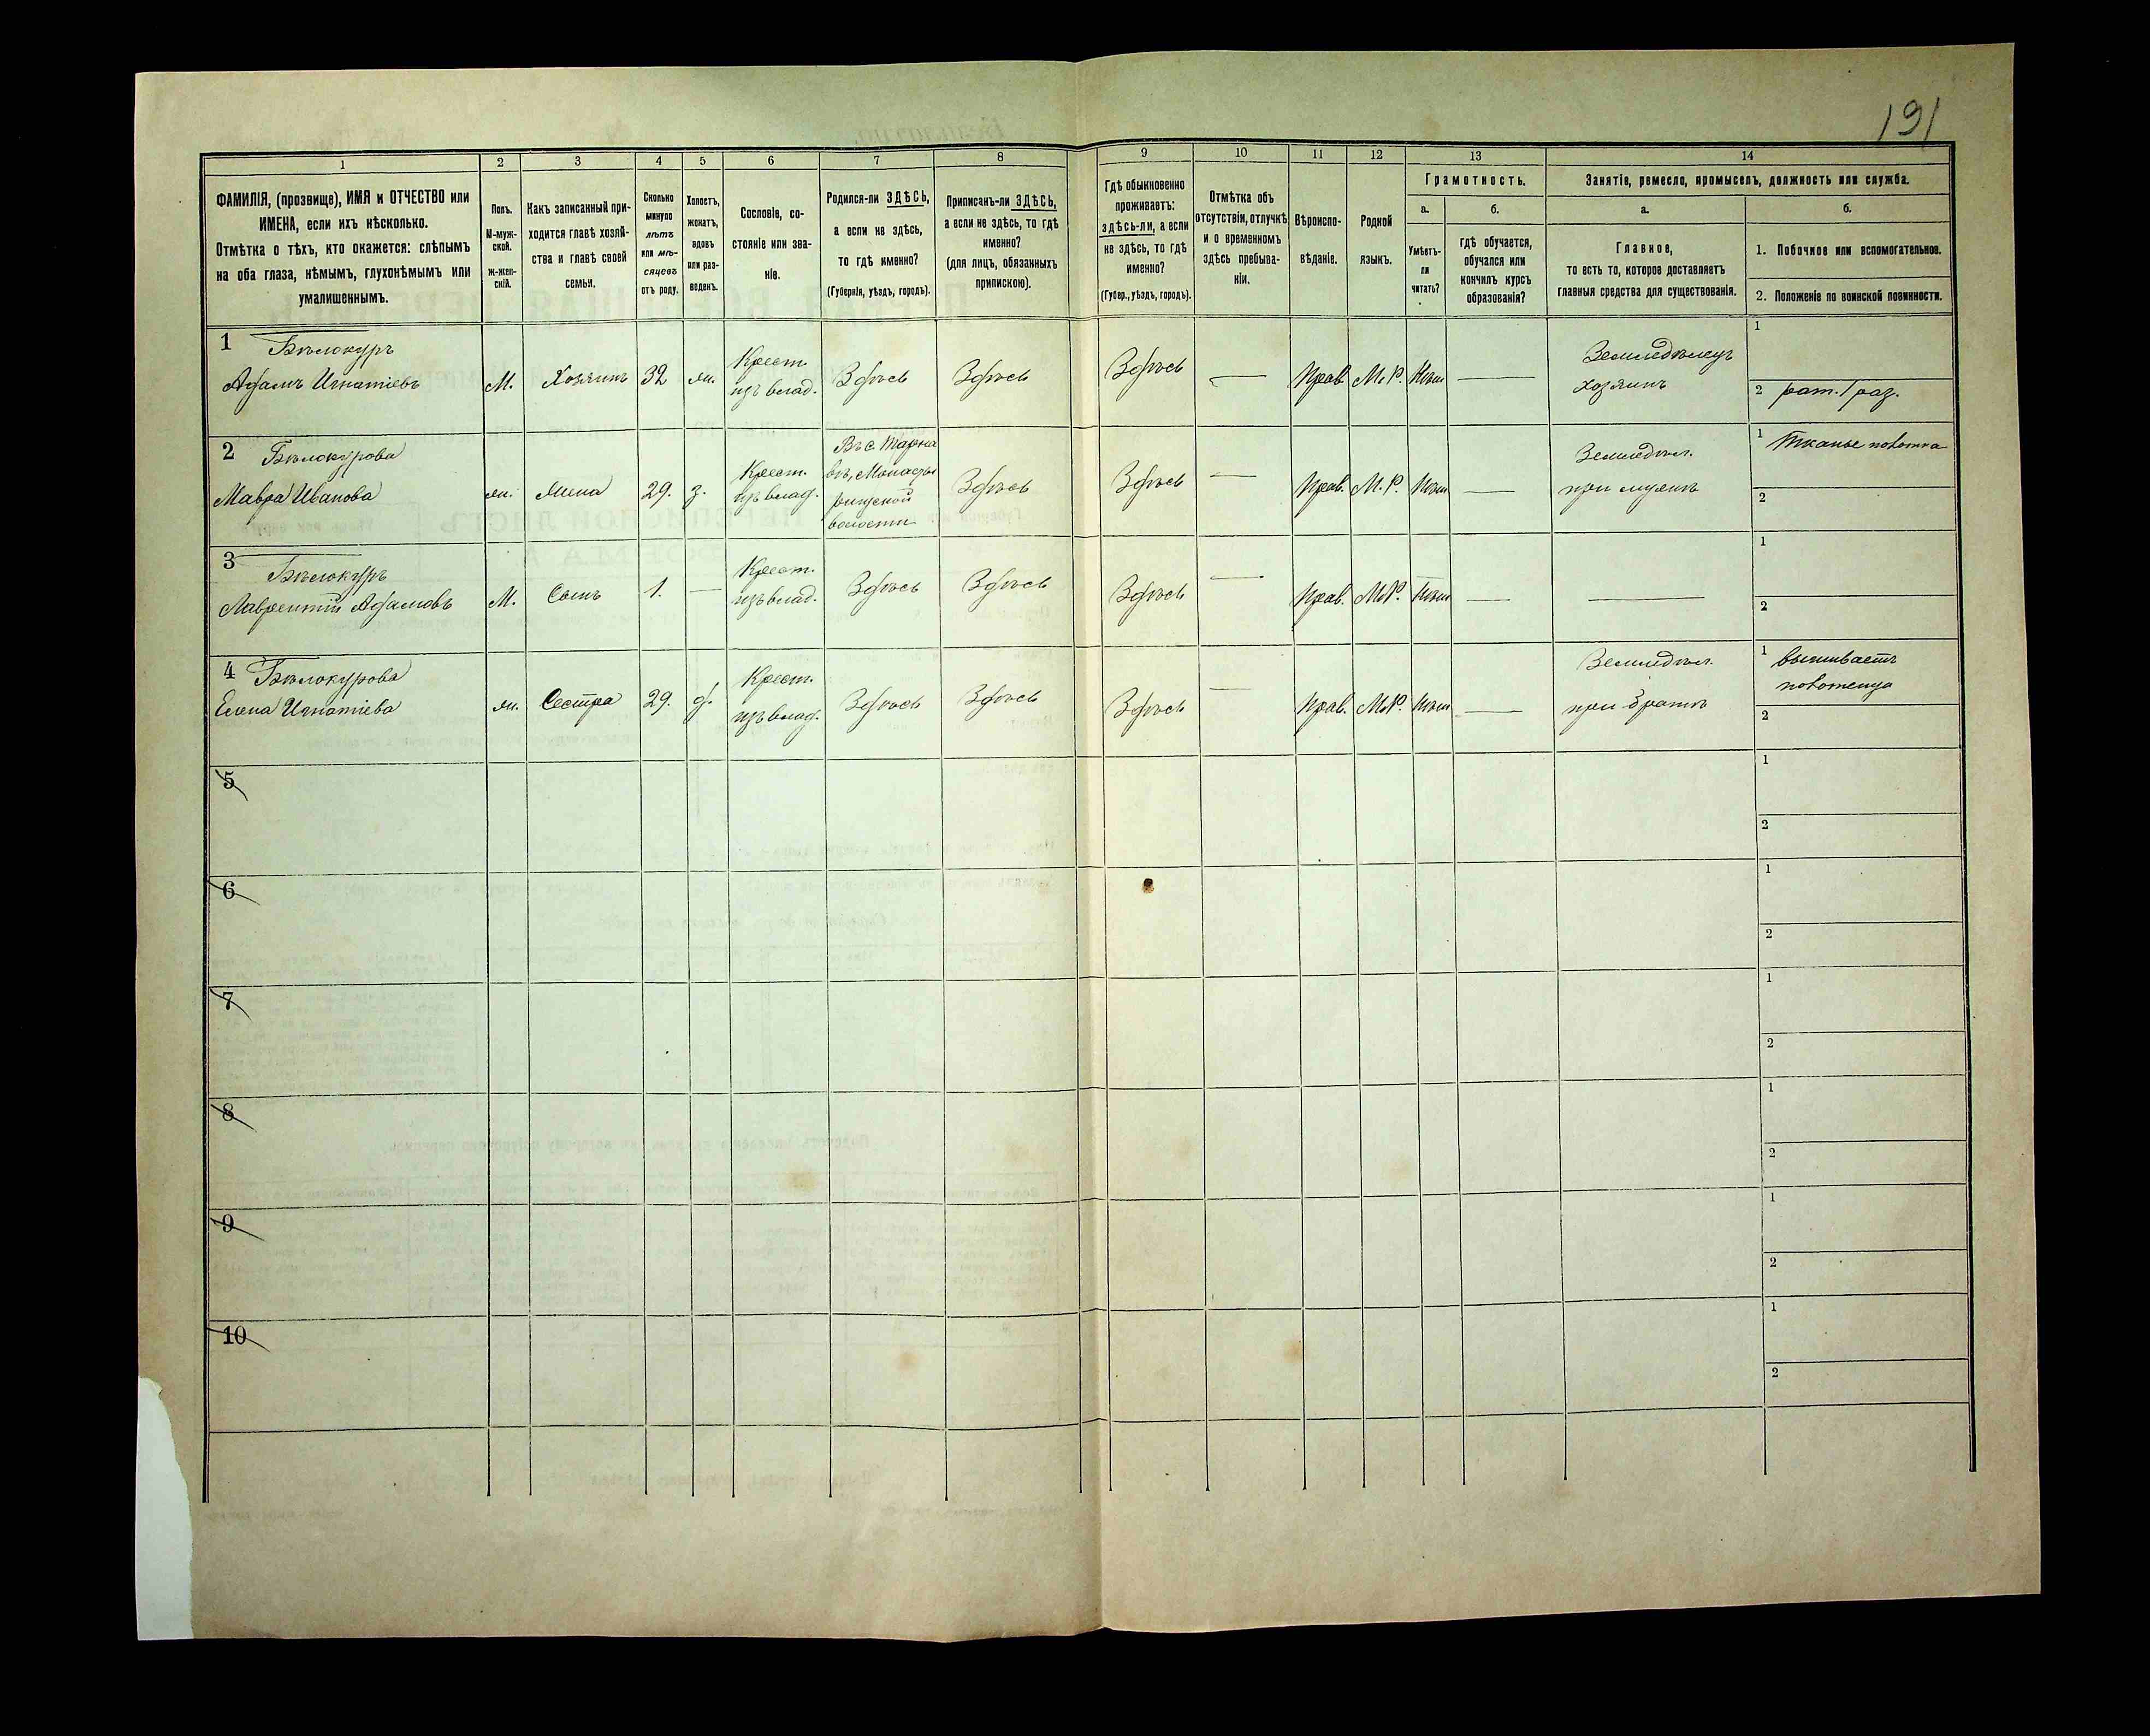 191
1 2 3 4 5 6 7 8 9 10 11 12 13 14
ФАМИЛІЯ, (прозвище), ИМЯ и ОТЧЕСТВО или
ИМЕНА, если ихъ нѣсколько.
Отмѣтка о тѣхъ, кто окажется: слѣпымъ
на оба глаза, нѣмымъ, глухонѣмымъ или
умалишеннымъ.
Полъ.
М-муж-
ской.
ж-жен-
скій.
Какъ записанный при-
ходится главѣ хозяй-
ства и главѣ своей
семьи.
Сколько
минуло
лѣтъ
или мѣ-
сяцевъ
отъ роду.
Холостъ,
женатъ,
вдовъ
или раз-
веденъ.
Сословіе, со-
стояніе или зва-
ніе.
Родился-ли ЗДѢСЬ,
а если не здѣсь,
то гдѣ именно?
(Губернія, уѣздъ, городъ).
Приписанъ-ли ЗДѢСЬ,
а если не здѣсь, то гдѣ
именно?
(для лицъ, обязанныхъ
припискою).
Гдѣ обыкновенно
проживаетъ:
здѣсь-ли, а если
не здѣсь, то гдѣ
именно?
(Губер., уѣздъ, городъ).
Отмѣтка объ
отсутствіи, отлучкѣ
и о временномъ
здѣсь пребыва-
ніи.
Вѣроиспо-
вѣданіе.
Родной
языкъ.
Грамотность.
а.
Умѣетъ-
ли
читать?
б.
гдѣ обучается,
обучался или
кончилъ курсъ
образованія?
Занятіе, ремесло, промыселъ, должность или служба.
а.
Главное,
то есть то, которое доставляетъ
главныя средства для существованія.
б.
1. Побочное или вспомогательное.
2. Положеніе по воинской повинности.
1 Бѣлокуръ
Адамъ Игнатіевъ
М.
Хозяинъ
32
ж.
Крест.
изъ влад.
Здѣсь
Здѣсь
Здѣсь
—
Прав.
М. Р.
Нѣт
—
Земледѣлецъ
хозяинъ
1
2 рат. 1 раз.
2 Бѣлокурова
Мавра Иванова
ж.
Жена
29.
з.
Крест.
изъ влад.
Въ с. Тарна
вѣ, Монасты
рищской
волости
Здѣсь
Здѣсь
—
Прав.
М. Р.
Нѣт
—
Земледѣл.
при мужѣ
1 Тканье полотна
2
3 Бѣлокуръ
Лаврентій Адамовъ
М.
Сынъ
1.
—
Крест.
изъ влад.
Здѣсь
Здѣсь
Здѣсь
—
Прав.
М. Р.
Нѣт
—
—
1
2
4 Бѣлокурова
Елена Игнатіева
ж.
Сестра
29.
д.
Крест.
изъ влад.
Здѣсь
Здѣсь
Здѣсь
—
Прав.
М. Р.
Нѣт
—
Земледѣл.
при братѣ
1 вышиваетъ
полотенца
2
5
1
2
6
1
2
7
1
2
8
1
2
9
1
2
10
1
2